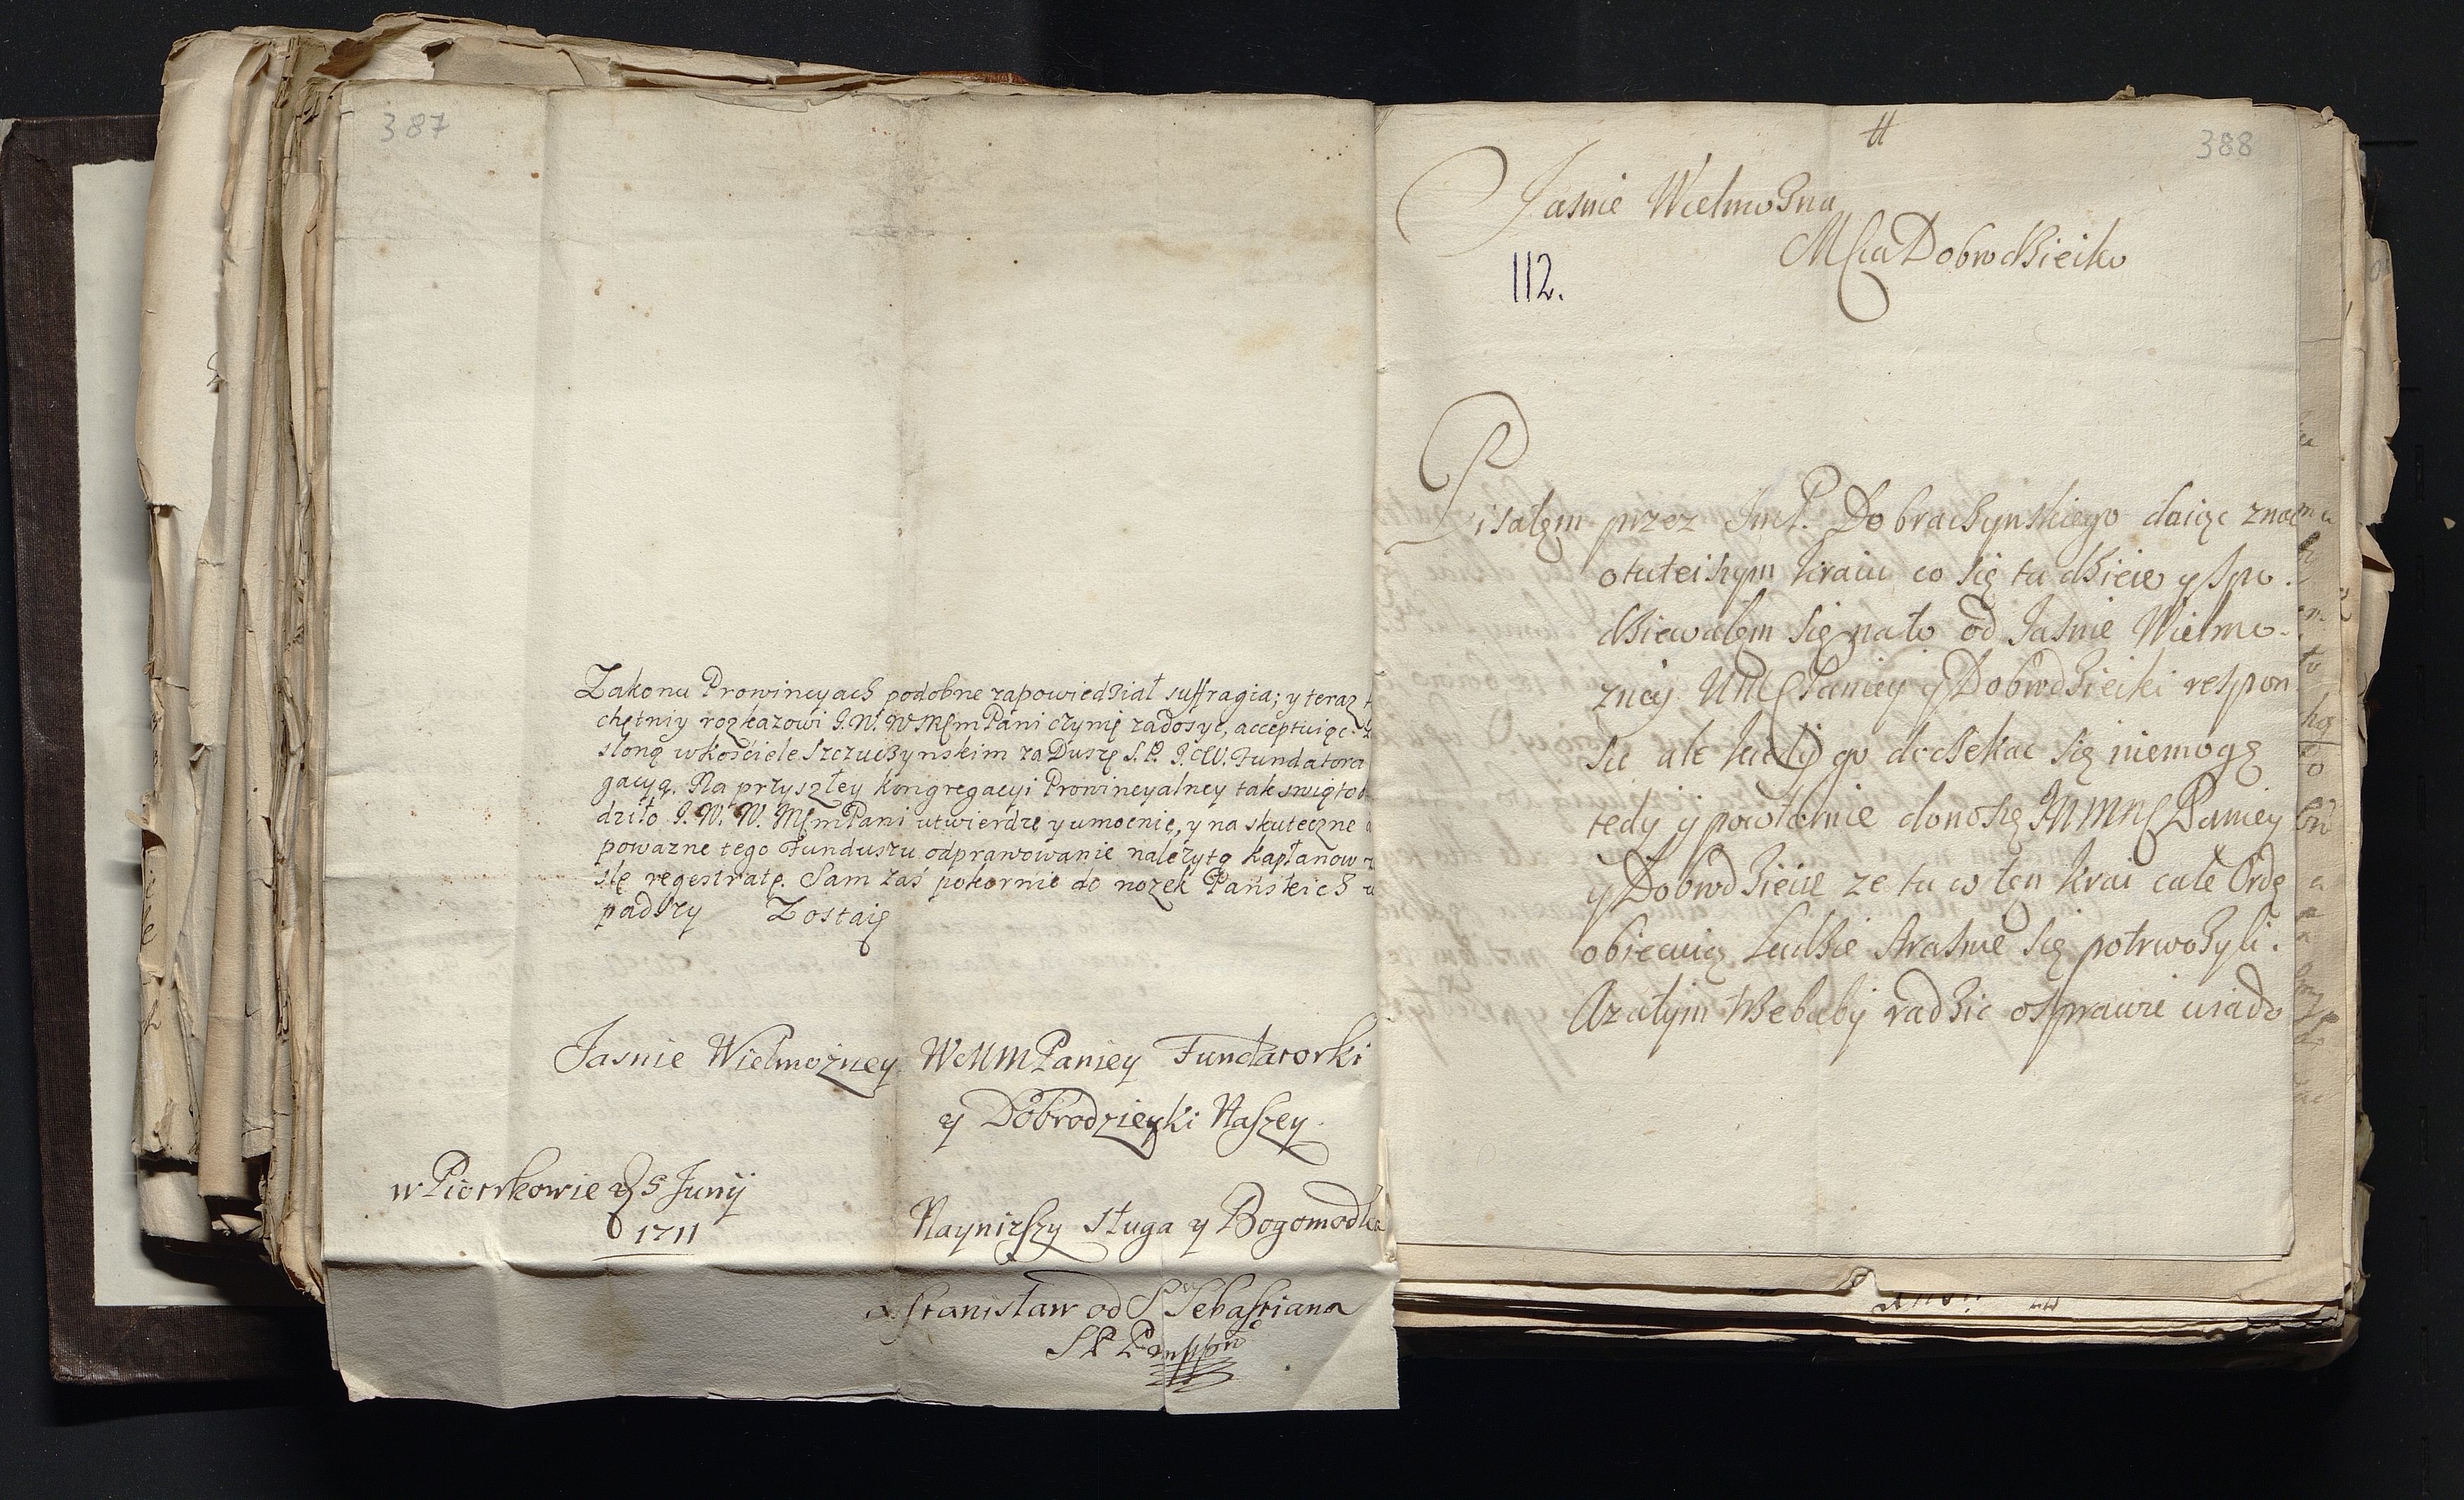 387
Zakonu Prowincyach podobne zapowiedział suffragia; y teraz
chętniy rozkazowi J. W. W MCm Pani czynię zadosyć, acceptuiąc
sloną w kościele Szczuczynskim za Duszę S. P. J. W. Fundatora
gacyą. Na przyszłey kongregacyi Prowincyalney tak swięto
dziło J. W. W. MCmPani utwierdzę y umocnię, y na skuteczne
powazne tego Funduszu odprawowanie należytą kapłanow
slę regestratę. Sam zaś pokornie do nozek Pańskich u
padszy Zostaię
Jasnie Wielmożney WMMPaniey Fundatorki
y Dobrodzieyki Naszey.
w Piotrkowie 5 Junij
1711
Naynizszy sługa y Bogomodlca
Stanisław od S. Sebastiana
S P P
tt
388
Jasnie Wielmozna
MCia Dobrodzieiko
112.
Pisałęm przez ImP. Dobraczynskiego daiąc znac
o tuteiszym kraiu co się tu dzieie y spo.
dziewałęm się na to od Jasnie Wielmo.
zney WMC Paniey y Dobrodzieiki respon
su ale kiedy go doczekac się niemogę
tedy y powtornie donoszę JWMMC Paniey
y Dobrodzieice ze tu w tęn krai całe Ordę
obiecuią Ludzie strasnie się potrwozyli.
A zatym trzebaby radzic o sprawie uiado